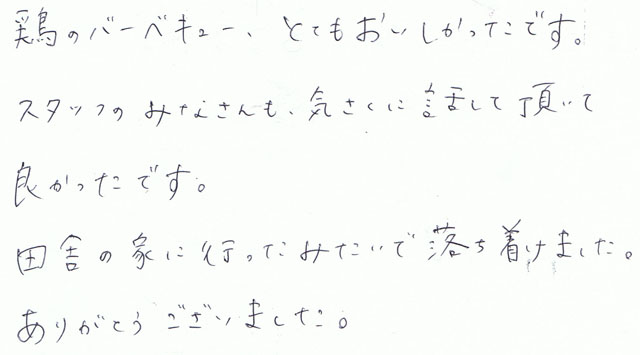 鶏のバーベキュー、とてもおいしかったです。
スタッフのみなさんも、気さくに話して頂いて
良かったです。
田舎の家に行ったみたいで落ち着けました。
ありがとうございました。